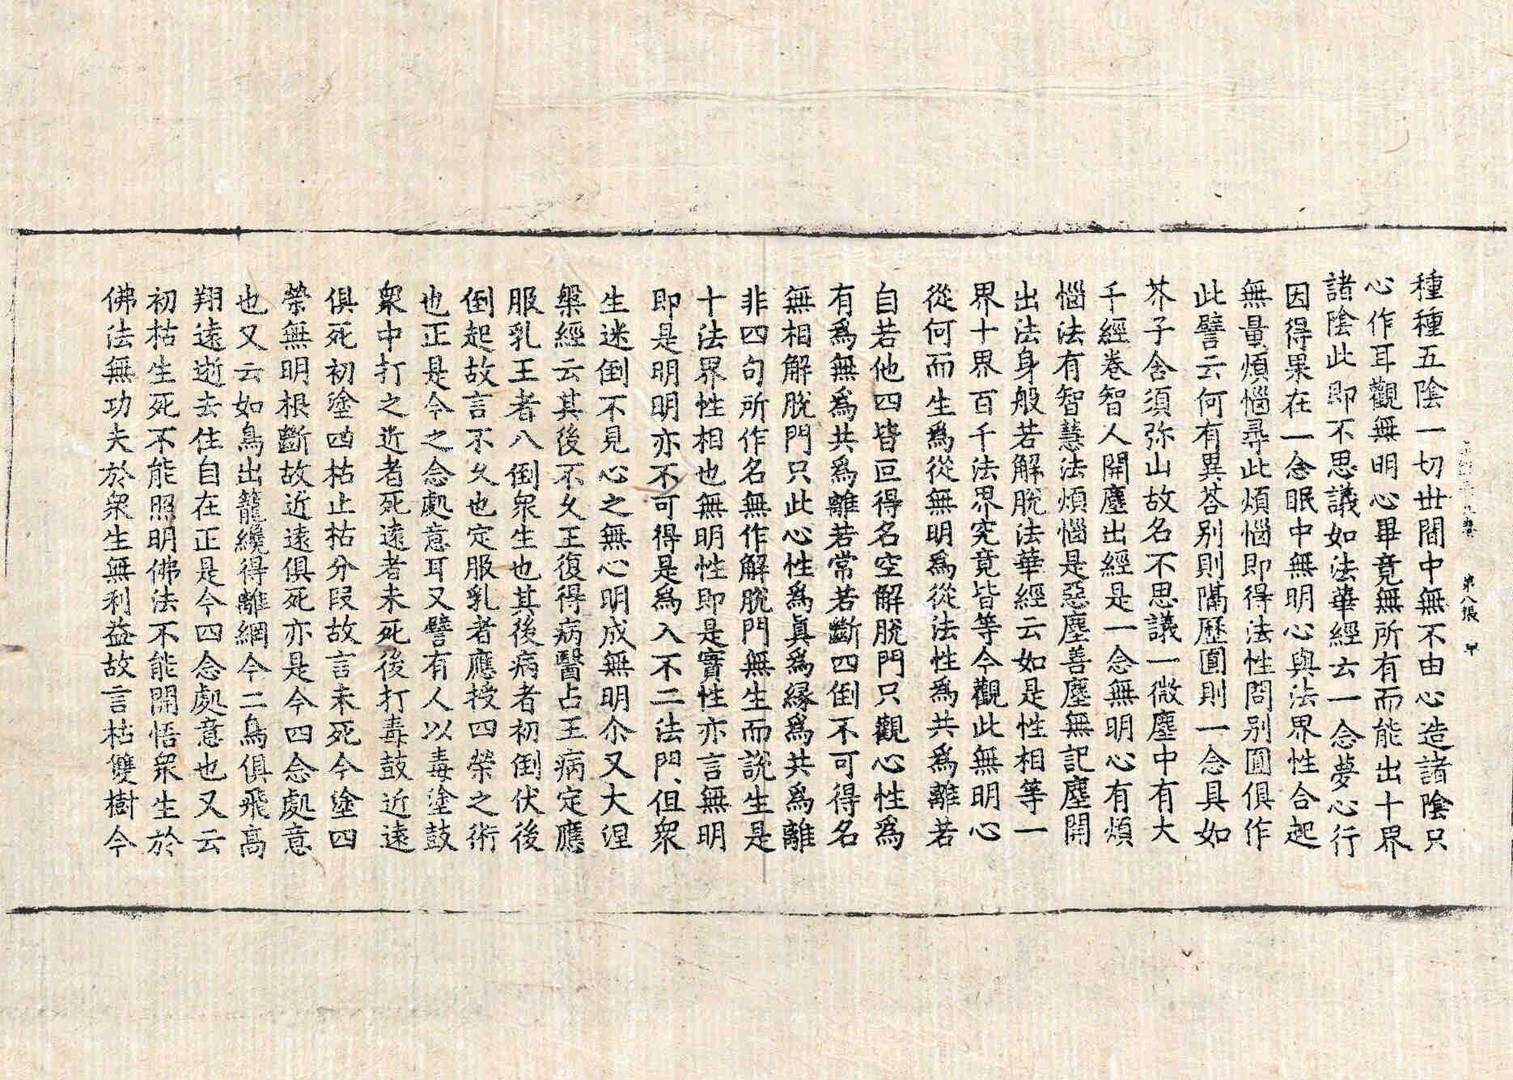 種種五陰一切世間中無不由心造諸陰只
心作耳觀無明心畢竟無所有而能出十界
諸陰此即不思議如法華經云一念夢心行
因得果在一念眠中無明心與法界性合起
無量煩惱尋此煩惱即得法性問别圓俱作
此譬云何有異荅别則隔歷圓則一念具如
芥子含須弥山故名不思議一微塵中有大
千經卷智人開塵出經是一念無明心有煩
惱法有智慧法煩惱是惡塵善塵無記塵開
出法身般若解脫法華經云如是性相等一
界十界百千法界究竟皆等今觀此無明心
從何而生爲從無明爲從法性爲共爲離若
自若他四皆叵得名空解脫門只觀心性爲
有爲無爲共爲離若常若斷四倒不可得名
無相解脫門只此心性爲眞爲緣爲共爲離
非四句所作名無作解脫門無生而說生是
十法界性相也無明性即是實性亦言無明
即是明明亦不可得是爲入不二法門但衆
生迷倒不見心之無心明成無明尒又大涅
槃經云其後不久王復得病醫占王病定應
服乳王者八倒衆生也其後病者初倒伏後
倒起故言不久也定服乳者應授四榮之術
也正是今之念處意耳又譬有人以毒塗鼓
衆中打之近者死遠者未死後打毒鼓近遠
俱死初塗四枯止枯分段故言未死今塗四
榮無明根斷故近遠俱死亦是今四念處意
也又云如鳥出籠纔得離網今二鳥俱飛高
翔遠逝去住自在正是今四念處意也又云
初枯生死不能照明佛法不能開悟衆生於
佛法無功夫於衆生無利益故言枯雙樹今
第八張 甲